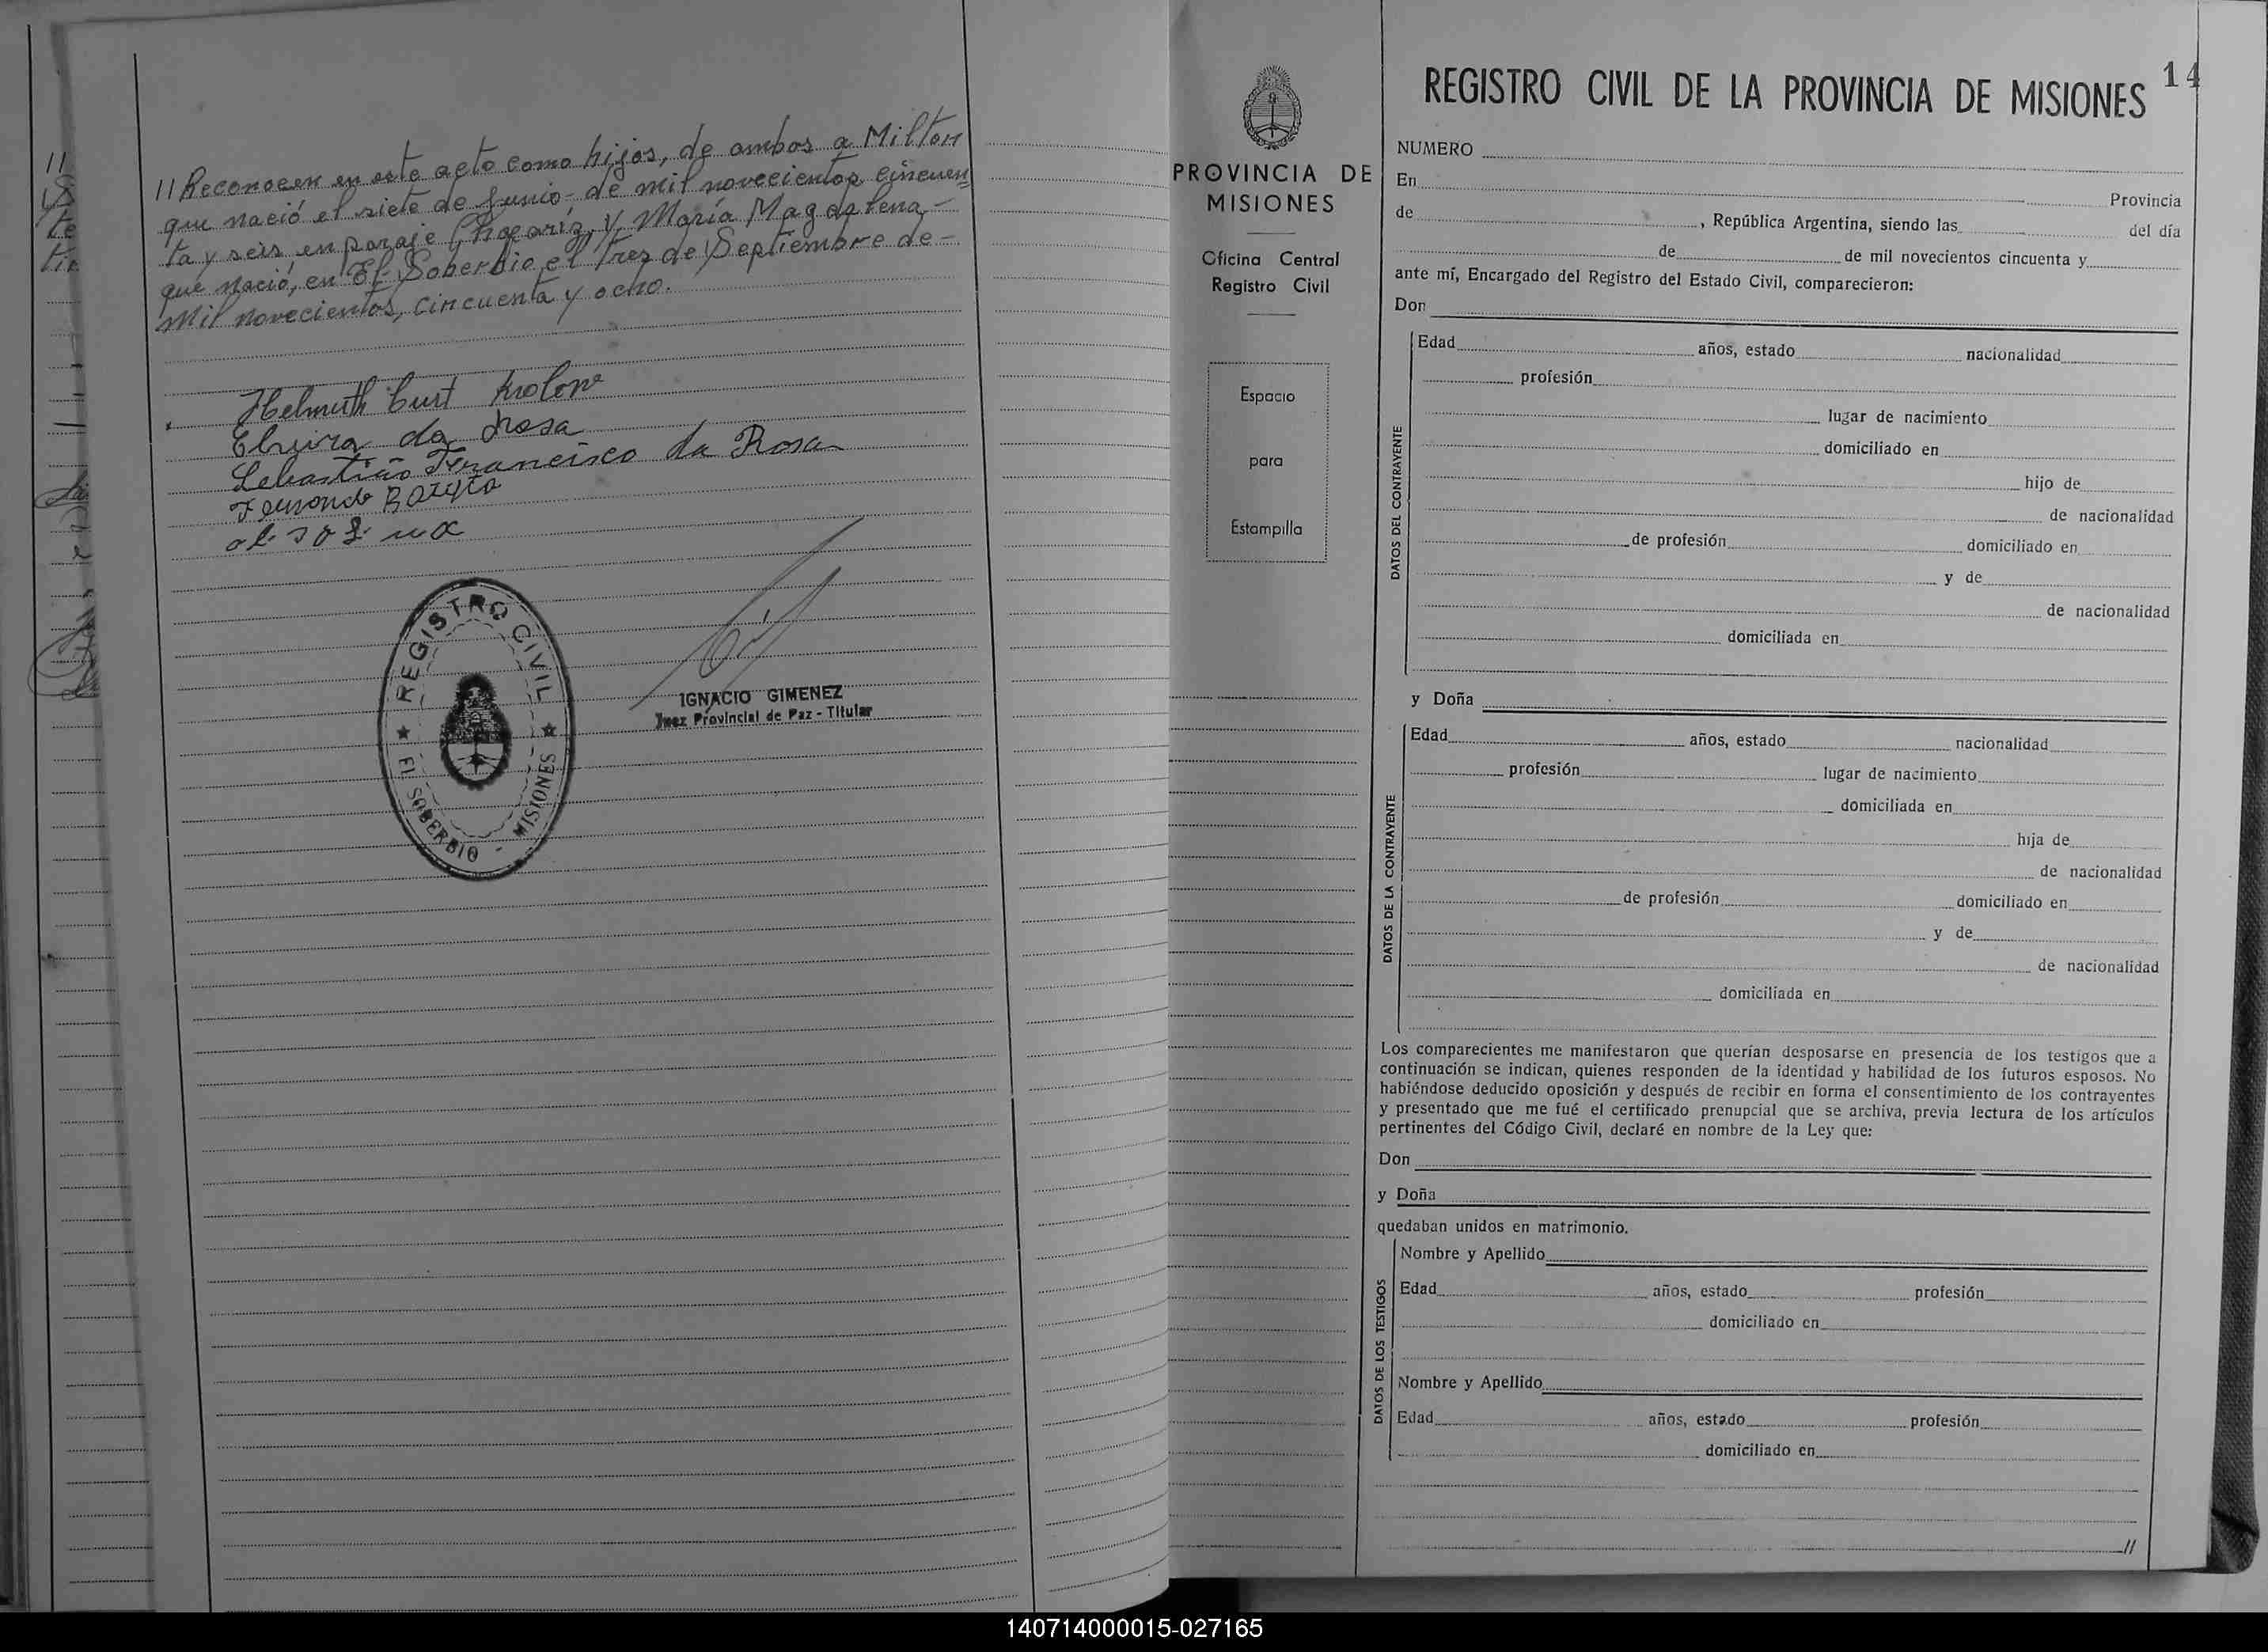 // Reconocen en este acto como hijos, de ambos a Milton
que nació el siete de Junio - de mil novecientos cincuen
ta y seis en paraje y María Magdalena -
que nació, en El Soberbio el tres de Septiembre de -
Mil novecientos, cincuenta y ocho.
Helmuth Curt
Elvira da Rosa
Sebastião Francisco da Rosa
Fernando Batista
REGISTRO CIVIL
EL SOBERBIO - MISIONES
IGNACIO GIMENEZ
Juez Provincial de Paz - Titular
PROVINCIA DE
MISIONES
Oficina Central
Registro Civil
Espacio
para
Estampilla
14
REGISTRO CIVIL DE LA PROVINCIA DE MISIONES
NUMERO
En Provincia
de , República Argentina, siendo las del día
de de mil novecientos cincuenta y
ante mí, Encargado del Registro del Estado Civil, comparecieron:
Don
DATOS DEL CONTRAYENTE
Edad años, estado nacionalidad
profesión
lugar de nacimiento
domiciliado en
hijo de
de nacionalidad
de profesión domiciliado en
y de
de nacionalidad
domiciliada en
y Doña
DATOS DE LA CONTRAYENTE
Edad años, estado nacionalidad
profesión lugar de nacimiento
domiciliada en
hija de
de nacionalidad
de profesión domiciliado en
y de
de nacionalidad
domiciliada en
Los comparecientes me manifestaron que querían desposarse en presencia de los testigos que a
continuación se indican, quienes responden de la identidad y habilidad de los futuros esposos. No
habiéndose deducido oposición y después de recibir en forma el consentimiento de los contrayentes
y presentado que me fué el certificado prenupcial que se archiva, previa lectura de los artículos
pertinentes del Código Civil, declaré en nombre de la Ley que:
Don
y Doña
quedaban unidos en matrimonio.
DATOS DE LOS TESTIGOS
Nombre y Apellido
Edad años, estado profesión
domiciliado en
Nombre y Apellido
Edad años, estado profesión
domiciliado en
//
140714000015-027165